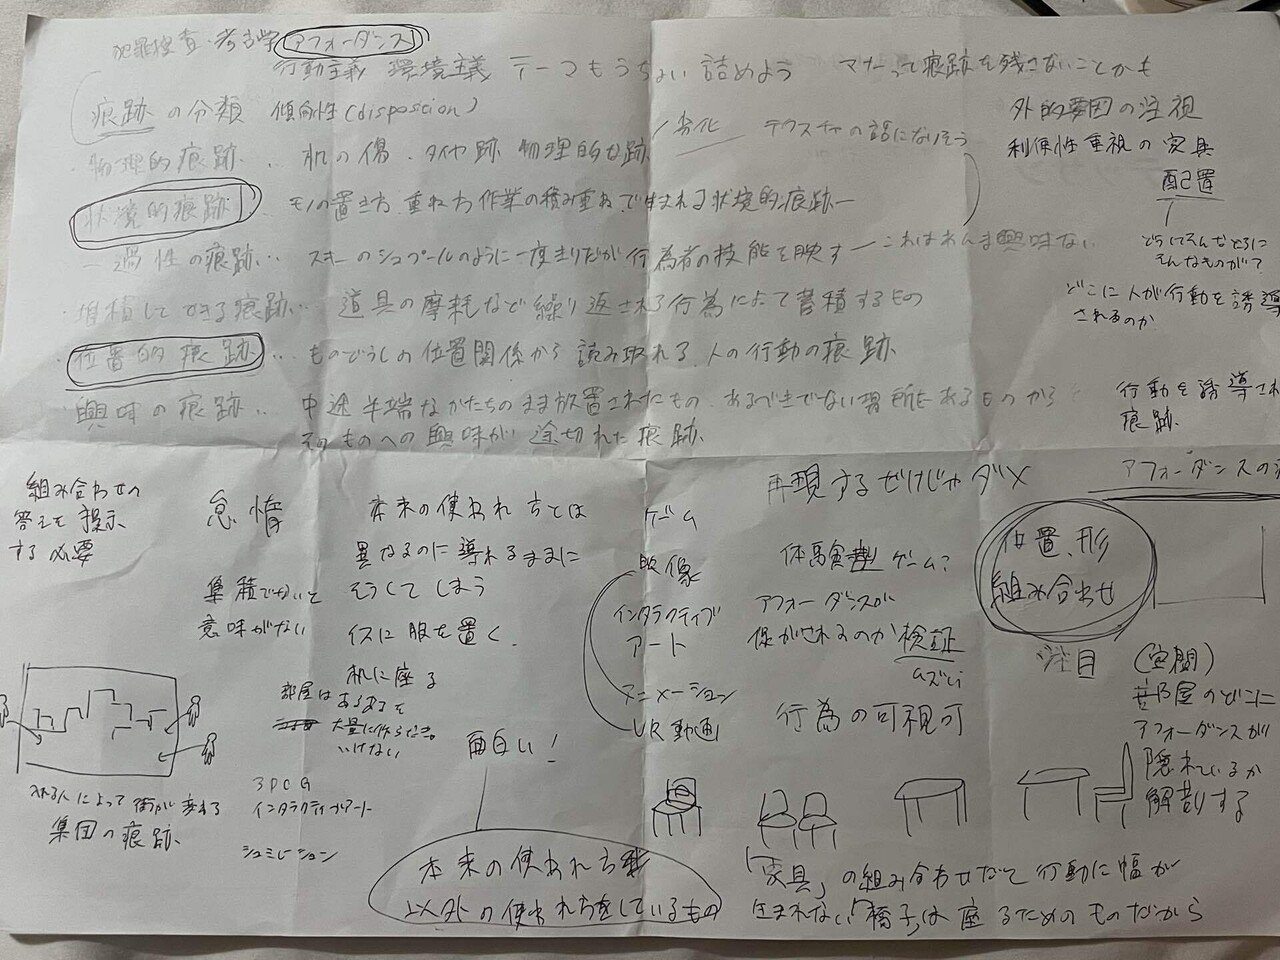 犯罪捜査・考古学 アフォーダンス
行動主義 環境主義 テーマもうちょい詰めよう マナーって痕跡を残さないことかも
痕跡の分類 傾向性(disposition)
・物理的痕跡… 机の傷、タイヤ跡 物理的な跡
劣化 テクスチャの話になりそう
状況的痕跡 モノの置き方、重ね方 作業の積み重ねで生まれる状況的痕跡
一過性の痕跡… スキーのシュプールのように一度きりだが行為者の技能を映す これはあんま興味ない
・堆積してできる痕跡… 道具の摩耗など繰り返される行為によって蓄積するもの
・位置的痕跡… ものどうしの位置関係から読み取れる人の行動の痕跡
・興味の痕跡… 中途半端なかたちのまま放置されたもの、あるべきでない場所にあるものから
そのものへの興味が途切れた痕跡
外的要因の注視
利便性重視の家具
配置
どうしてそんなところに
そんなものが?
どこに人が行動を誘導
されるのか
行動を誘導され
痕跡
アフォーダンスの
組み合わせの
答えを提示
する必要
怠惰
集積でないと
意味がない
本来の使われ方とは
異なるのに導かれるままに
そうしてしまう
イスに服を置く
机に座る
部屋は
あるあるを
大量に作らなきゃ
いけない
面白い!
3DCG
インタラクティブアート
シュミレーション
入る人によって街が変わる
集団の痕跡
ゲーム
映像
インタラクティブ
アート
アニメーション
VR動画
再現するだけじゃダメ
体験型ゲーム?
アフォーダンスが
促がされるのか検証
ムズい
行為の可視可
位置、形
組み合わせ
注目
(空間)
部屋のどこに
アフォーダンスが
隠れているか
解剖する
本来の使われ方
以外の使われ方をしているもの
「家具」の組み合わせだて行動に幅が
生まれない「椅子」は座るためのものだから